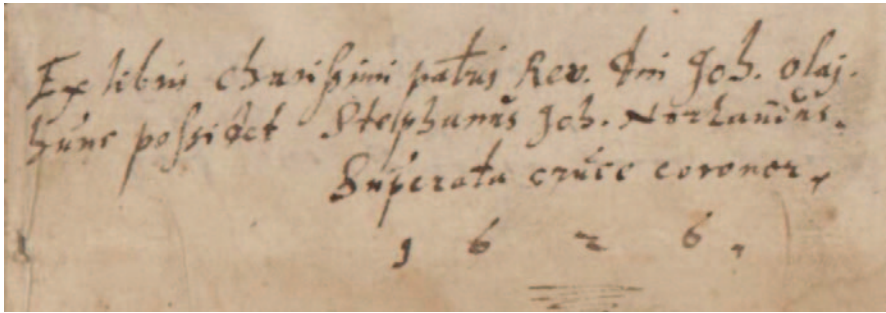 Ex libris charissimi patris Rev. dni Joh. Olaj.
hunc possidet Stephanus Joh. Norlandus.
Superata cruce coronor,
1626.